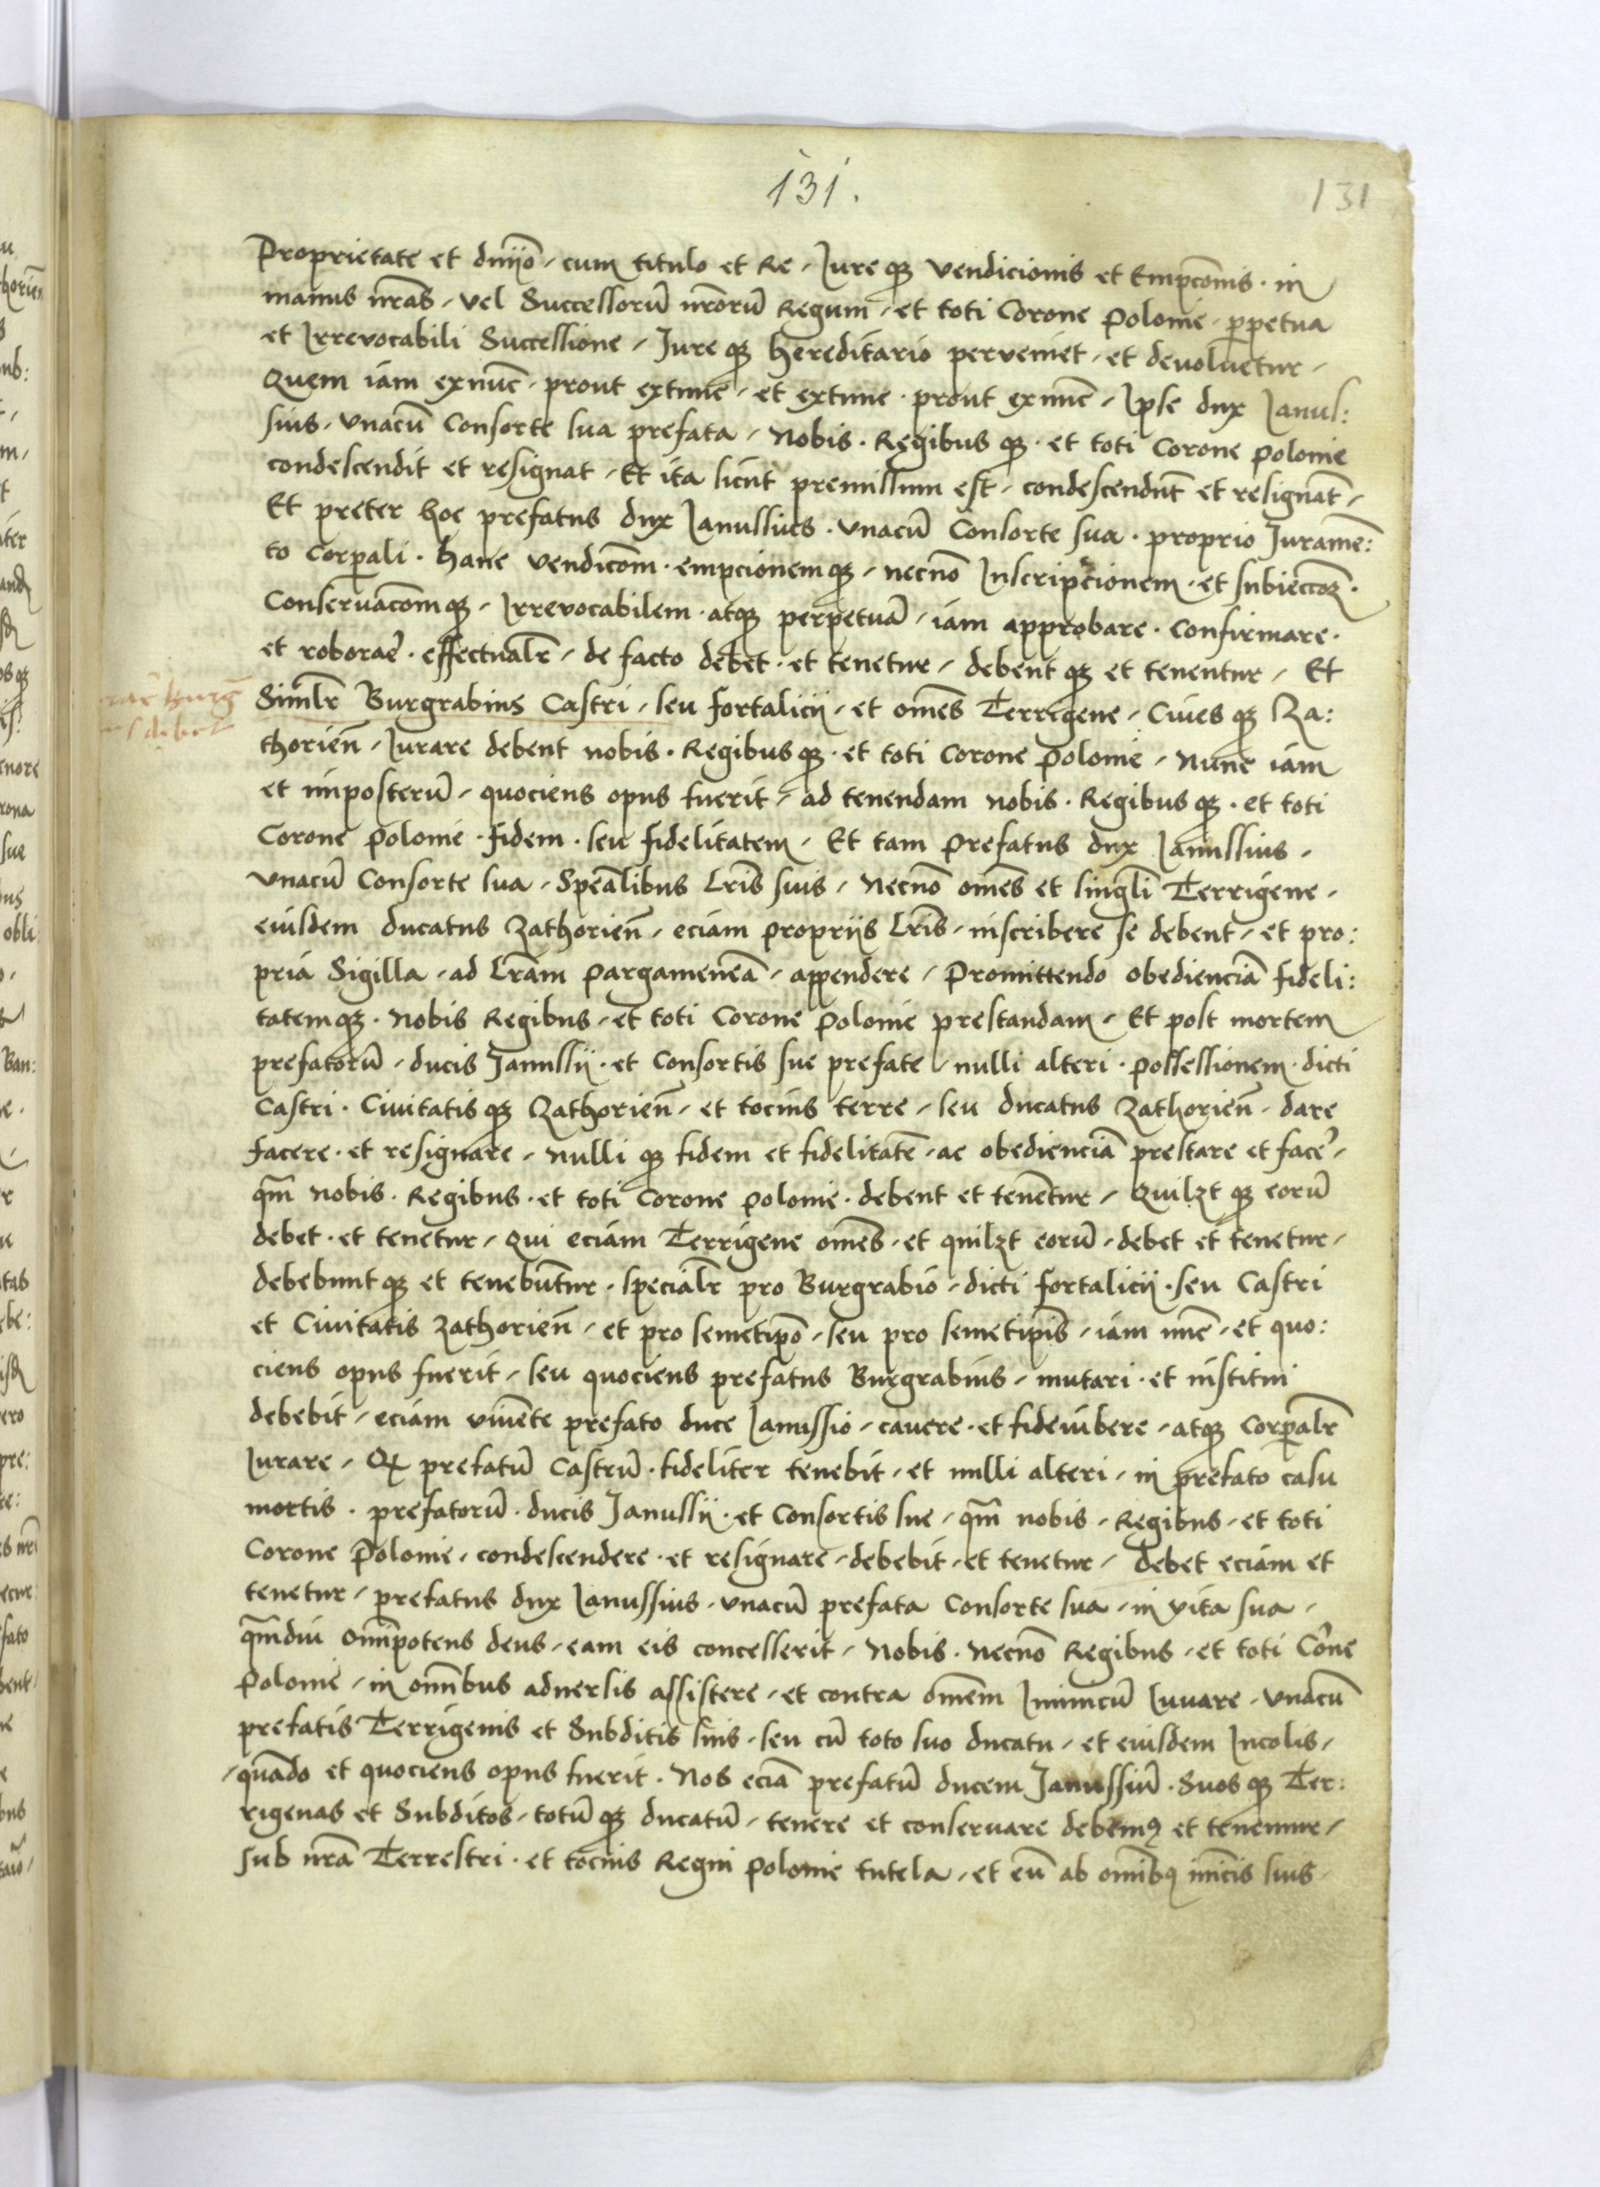 131.
131
Proprietate et dnijo, cum titulo et Re, Iure qȝ vendicionis et Empconis · in
manus nras, vel Successorū nrorū Regum, et toti Corone Polonie, ppetua
et Irrevocabili Successione, Iure qȝ hereditario perveniet, et devoluetur,
Quem iam exnuc, prout extunc, et extunc · prout exnuc, Ipse dux Ianus:
sius, vnacū Consorte sua prefata, Nobis · Regibus qȝ · et toti Corone Polonie
condescendit et resignat, Et ita sicut premissum est, condescendut et resignat,
Et preter hoc prefatus dux Ianussius · vnacū Consorte sua · proprio Iurame:
to Corpali · hanc vendicom · empcionemqȝ, necnō Inscripcionem · et subieccoȝ ·
Conseruacomqȝ, Irrevocabilem · atqȝ perpetuā, iam approbare · Confirmare ·
et roborare · effectualr, de facto debet · et tenetur, debent qȝ et tenentur, Et
rare Burg
debet
Similr Burgrabius Castri, seu fortalicij, et omes Terrigene, Ciues qȝ Za:
thorien, Iurare debent nobis · Regibusqȝ · et toti Corone Polonie, Nunc iam
et imposterū, quociens opus fuerit, ad tenendam nobis · Regibus qȝ · et toti
Corone Polonie · fidem · seu fidelitatem, Et tam Prefatus dux Ianussius ·
vnacū Consorte sua, Spealibus Lris suis, Necnō omes et singli Terrigene ·
eiusdem ducatus Zathorien, eciam propriis Lris, inscribere se debent, et pro:
pria Sigilla, ad Lram Pargamenea, appendere, Promittendo obedienciā fideli:
tatemqȝ · Nobis Regibus, et toti Corone Polonie prestandam, Et post mortem
prefatorū, ducis Janussii · et Consortis sue prefate, nulli alteri · Possessionem · dicti
Castri · Ciuitatis qȝ Zathorien, et tocius terre, seu ducatus Zathorien, dare
facere · et resignare, nulli qȝ fidem et fidelitate, ac obedienciā prestare et face,
qm nobis · Regibus · et toti Corone Polonie · debent et tenetur, Quilȝt qȝ eorū
debet · et tenetur, Qui eciam Terrigene omes, et quilȝt eorū, debet et tenetur,
debebunt qȝ et tenebutur · specialr pro Burgrabio, dicti fortalicij · seu Castri
et Ciuitatis Zathorien, et pro semetipo, seu pro semetipis, iam nuc, et quo:
ciens opus fuerit, seu quociens prefatus Burgrabius, mutari · et institui
debebit, eciam viuente prefato duce Ianussio, cauere · et fideiubere, atqȝ Corpalr
Iurare, Qȝ prefatū Castrū · fideliter tenebit, et nulli alteri, in prefato casu
mortis · prefatorū · ducis Janussii · et Consortis sue, qm nobis, Regibus, et toti
Corone Polonie, condescendere · et resignare, debebit, et tenetur, Debet eciam et
tenetur, prefatus dux Ianussius, vnacū prefata Consorte sua, in vita sua,
qmdiu Omipotens deus, eam eis concesserit, Nobis · Necnō Regibus, et toti Cone
Polonie, in omibus aduersis assistere, et contra omem Inimicū Iuuare, vnacū
prefatis Terrigenis et Subditis suis, seu cū toto suo ducatu, et eiusdem Incolis,
quado et quociens opus fuerit · Nos eciā prefatū ducem Janussiū · Suos qȝ Ter:
rigenas et Subditos, totū qȝ ducatū, tenere et conseruare debemꝰ et tenemur,
sub nra Terrestri · et tocius Regni Polonie tutela, et eū ab omibꝰ imicis suis